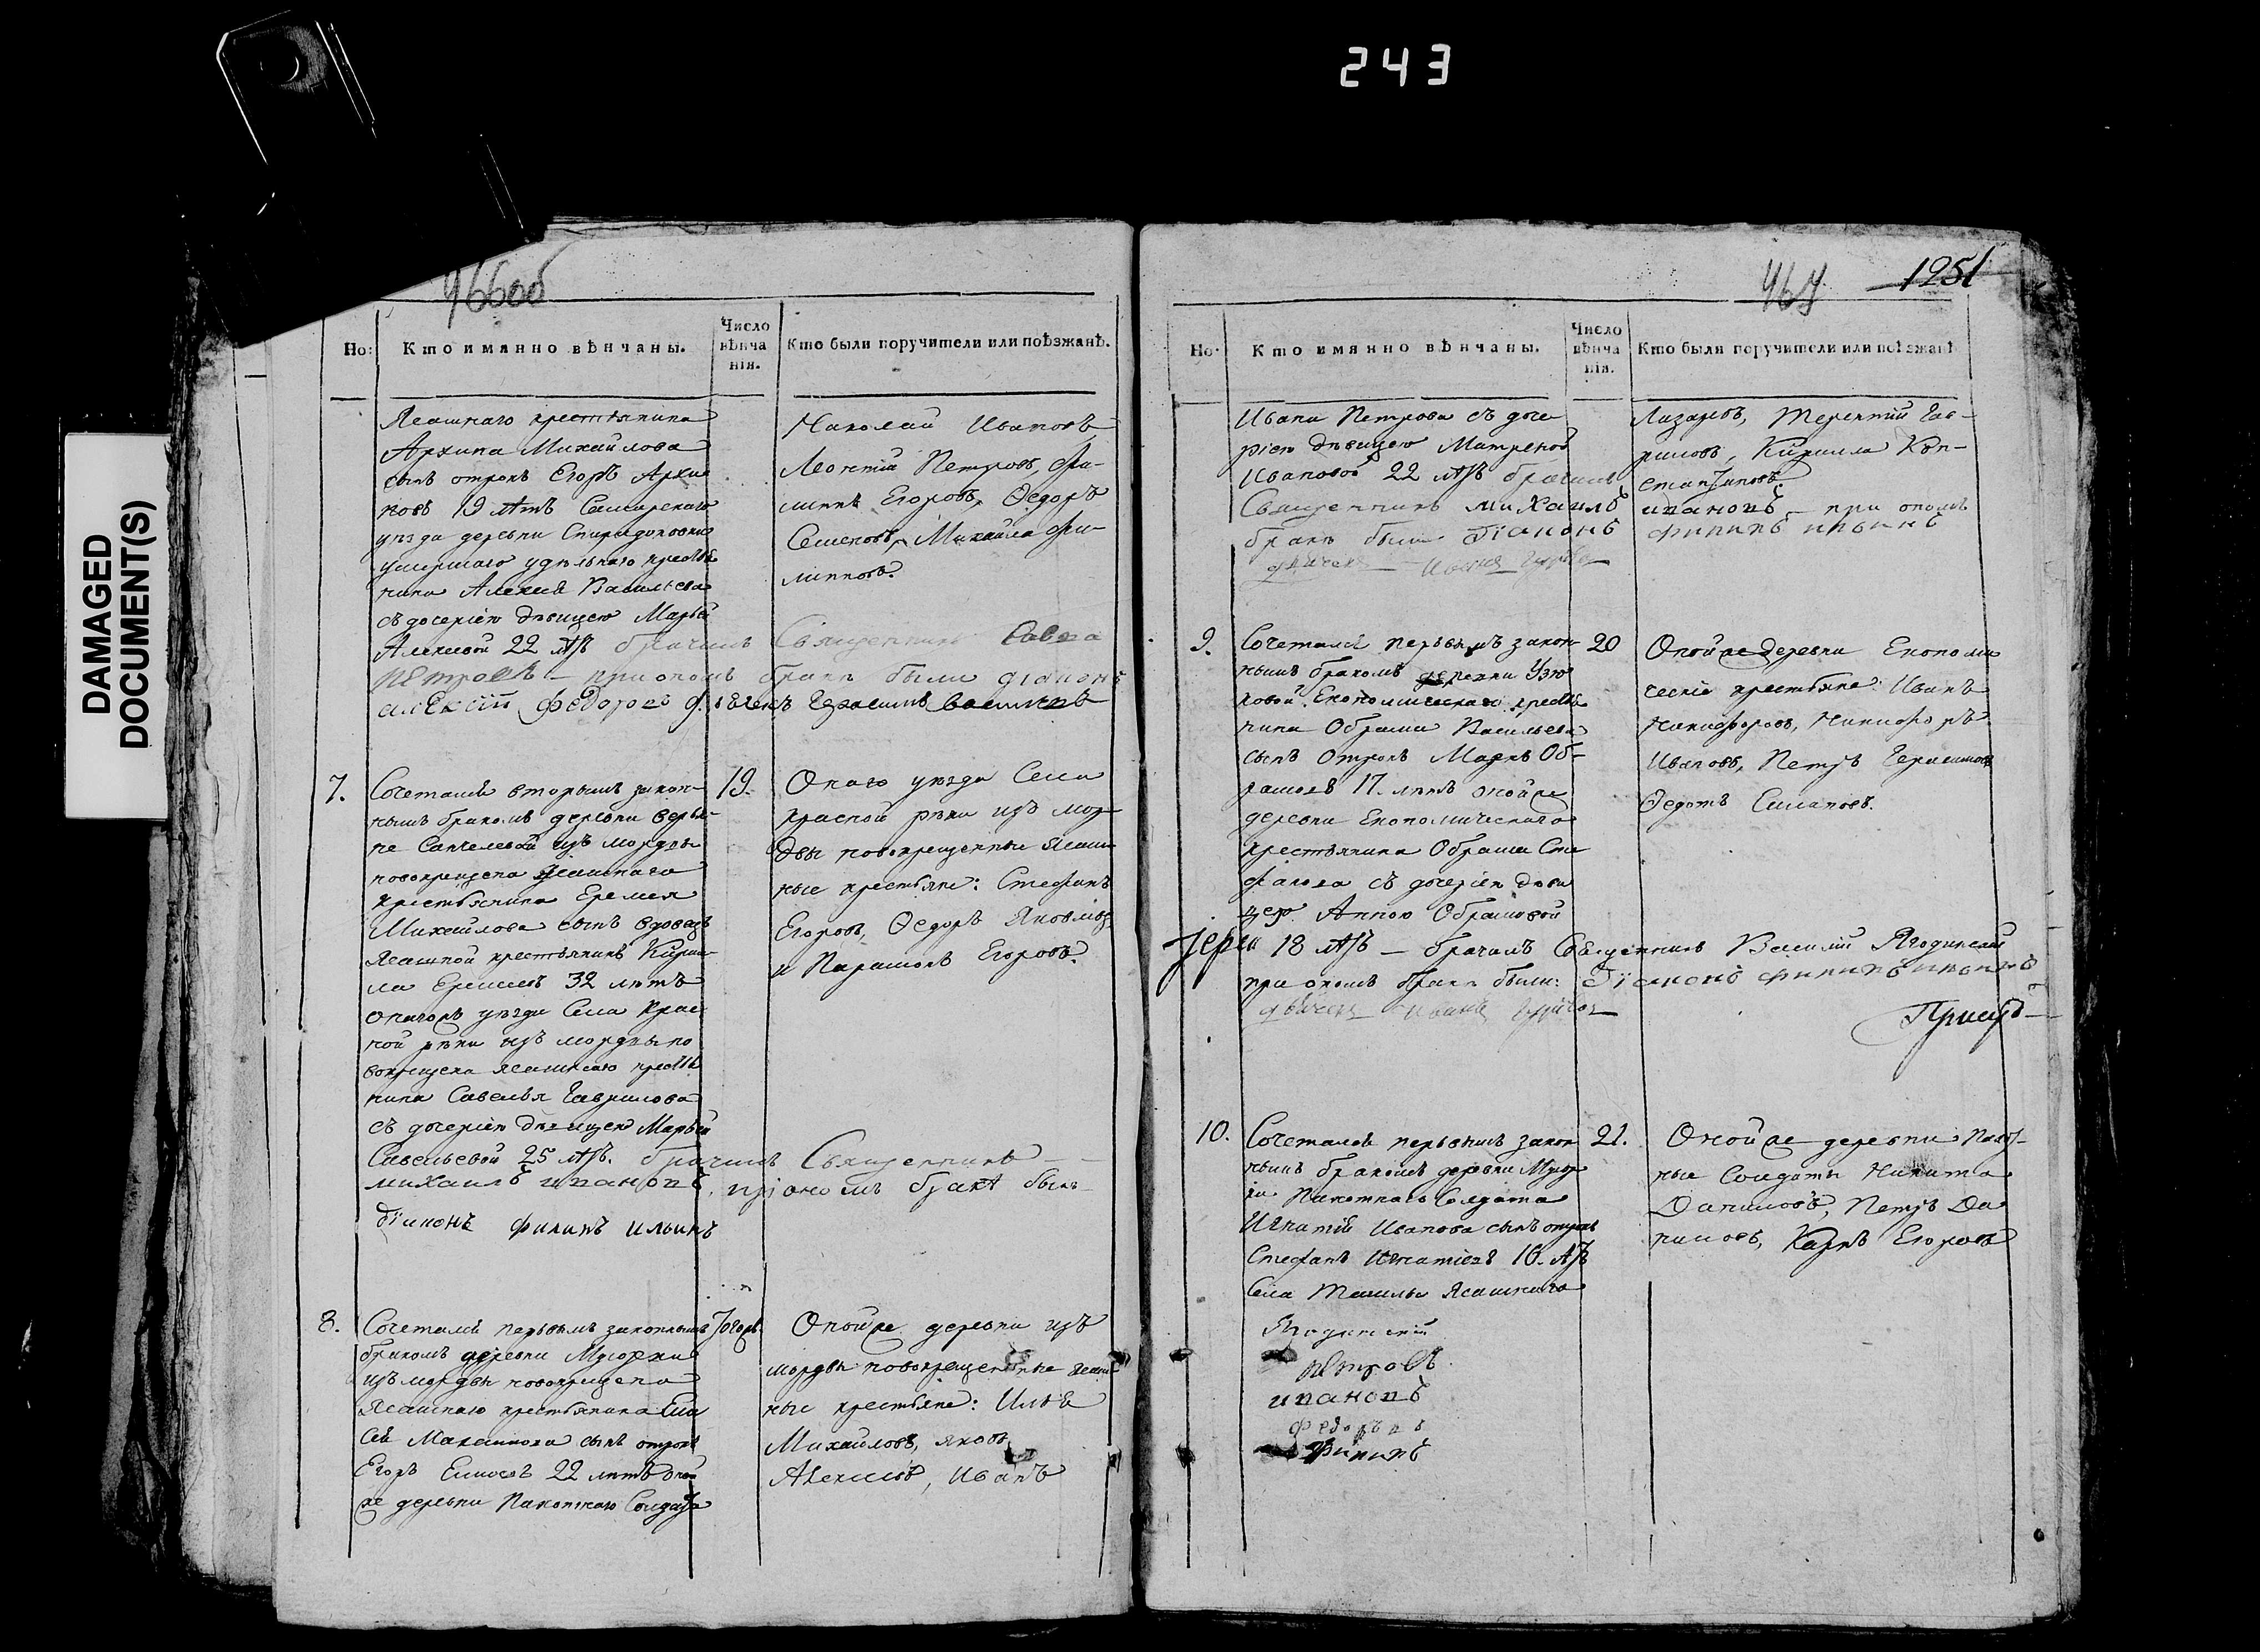 243
DAMAGED
DOCUMENT(S)
466об
467
1251
Но:
Кто имянно вѣнчаны.
Число
вѣнча
нія.
Кто были поручители или поѣзжанѣ.
Ясашнаго крестьянина
Архипа Михайлова
сынъ отрокъ Егоръ Архи
повъ 19 лѣтъ Самарскаго
уѣзда деревни Спиридоновки
умершаго удѣльнаго крестья
нина Алексея Васильева
съ дочерію дѣвицею Марьей
Алексевой 22 лѣтъ брачилъ Священникъ Савва
петровъ – при ономъ бракѣ были діаконъ
алексій федоровъ дьячекъ Герасимъ
Николай Ивановъ
Леонтій Петровъ, Фи-
липпъ Егоровъ, Ѳедоръ
Семеновъ, Михайла Фи-
липповъ.
7.
Сочетался вторымъ закон-
нымъ бракомъ деревни верх-
не Санчелеевой изъ мордвы
новокрещена ясашнаго
крестьянина Еремея
Михайлова сынъ вдовецъ
Ясашной крестьянинъ Кирил-
ла Еремеевъ 32 лѣтъ
онагожъ уѣзда Села Крас-
ной рѣки изъ мордвы но
вокрещена ясашнаго крестья
нина Савелья Гаврилова
съ дочерію дѣвицею Марьей
Савельевой 25 лѣтъ. брачилъ Священникъ
михаилъ ивановъ, при ономъ бракѣ былъ
діаконъ филипъ ильинъ
19.
Онаго уѣзда Села
красной рѣки изъ мор-
двы новокрещенные ясаш
ные крестьяне: Стефанъ
Егоровъ, Ѳедоръ Яковлевъ
и Парамонъ Егоровъ.
8.
Сочетался первымъ законнымъ
бракомъ деревни Мусорки
изъ мордвы новокрещена
Ясашнаго крестьянина Ели
сея Максимова сынъ отрокъ
Егоръ Елисеевъ 22 лѣтъ оной
же деревни Пахотнаго Солдата
Тогожъ
Оной же деревни изъ
мордвы новокрещенные ясаш
ные крестьяне: Илья
Михайловъ, яковъ
Алексеевъ, Иванъ
Но:
Кто имянно вѣнчаны.
Число
вѣнча
нія.
Кто были поручители или поѣзжанѣ
Ивана Петрова съ доче-
ріею дѣвицею Матреной
Ивановой 22 лѣтъ брачилъ
Священникъ михаилъ ивановъ – при ономъ
бракѣ были діаконъ филипъ ильинъ
Лазаревъ, Терентій Гав-
риловъ, Кирилла Кон-
стантиновъ.
9.
Сочетался первымъ закон-
нымъ бракомъ деревни Узю
ковой Економическаго крестья
нина Обрама Васильева
сынъ отрокъ Маркъ Об-
рамовъ 17. лѣтъ оной же
деревни Економическаго
крестьянина Обрама Сте
фанова съ дочерію дѣви
цею Анною Обрамовой
18 лѣтъ – брачилъ Священникъ Василій Ягодинский
при ономъ бракѣ были: діаконъ филипъ ильинъ
20
Оной же деревни Економи
ческіе крестьяне: Иванъ
Никифоровъ, Никифоръ
Ивановъ, Петръ Герасимовъ
Ѳедотъ Силановъ.
10.
Сочетался первымъ закон
нымъ бракомъ деревни Мусор
ки Пахотнаго Солдата
Игнатія Иванова сынъ отрокъ
Стефанъ Игнатіевъ 16. лѣтъ
Села Ташлы Ясашнаго
21.
Оной же деревни пахот-
ные Солдаты Никита
Даниловъ, Петръ Да
ниловъ, Карпъ Егоровъ
Ягодинский
петровъ
ивановъ
федоровъ
филипъ